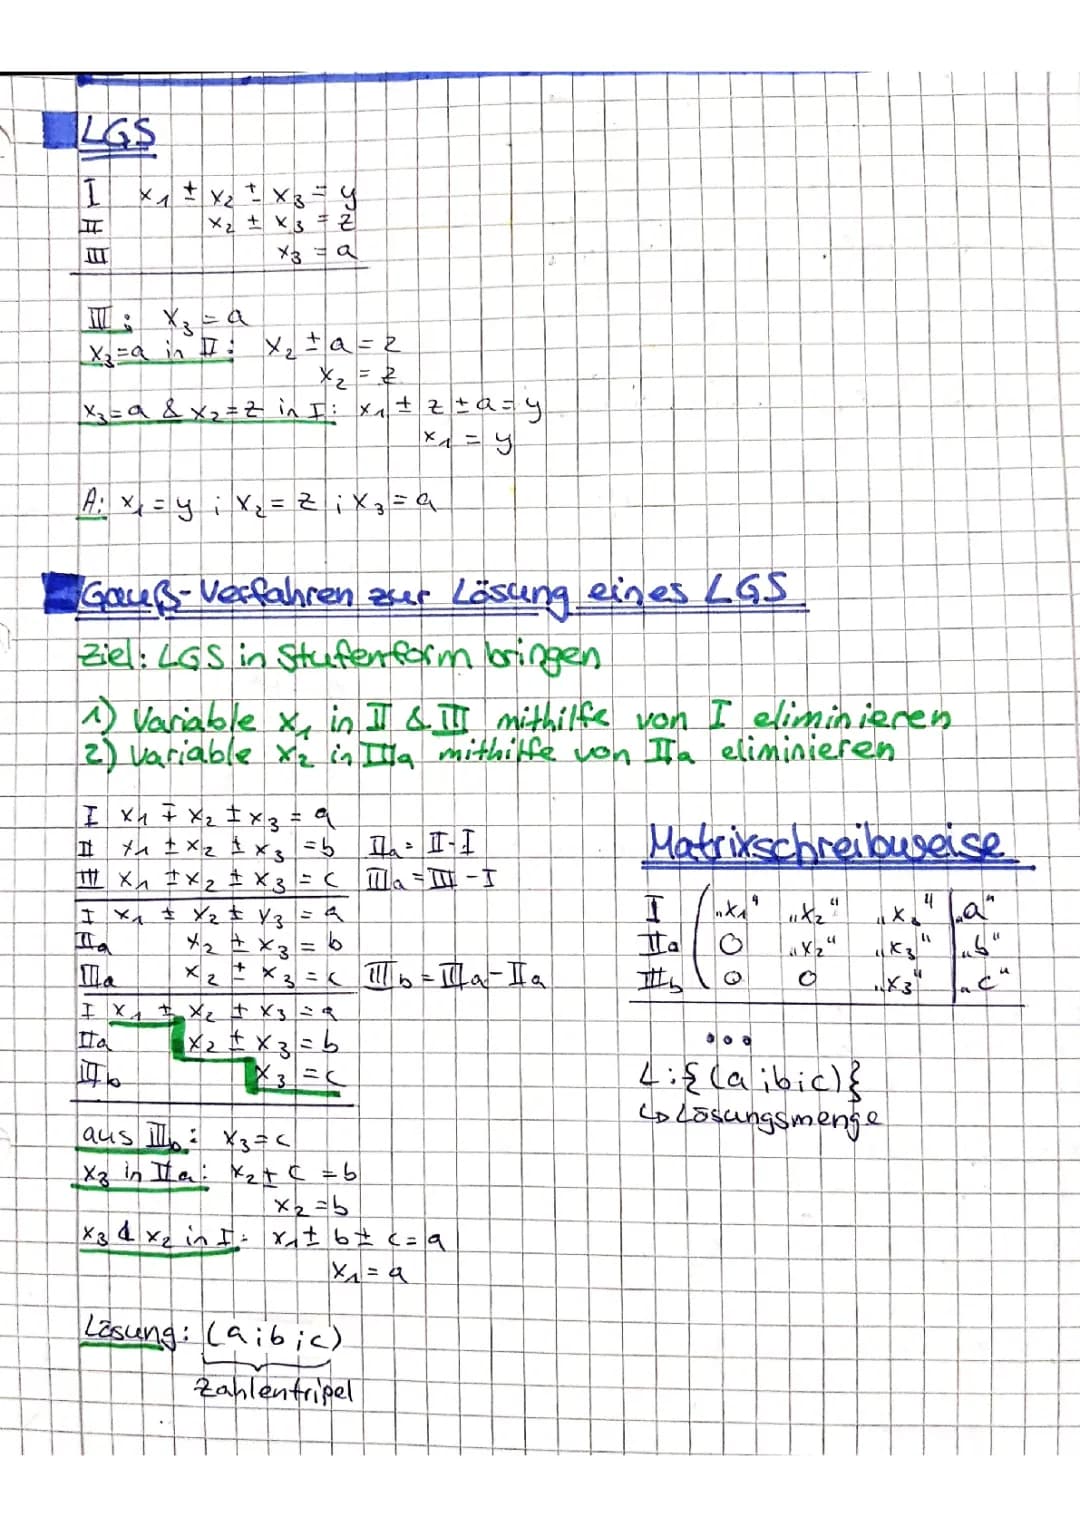 LGS
I x₁ ± x₂ ± x₃ = y
II x₂ ± x₃ = z
III x₃ = a
III: x₃ = a
x₃=a in II: x₂ ± a = z
x₂ = z
x₃=a & x₂=z in I: x₁ ± z ± a = y
x₁ = y
A: x₁ = y ; x₂ = z ; x₃ = a
Gauß-Verfahren zur Lösung eines LGS
Ziel: LGS in Stufenform bringen
1) Variable x₁ in II & III mithilfe von I eliminieren
2) Variable x₂ in IIIa mithilfe von IIa eliminieren
I x₁ ∓ x₂ ± x₃ = a
II x₁ ± x₂ ± x₃ = b IIa = II-I
III x₁ ± x₂ ± x₃ = c IIIa = III - I
I x₁ ± x₂ ± x₃ = a
IIa x₂ ± x₃ = b
IIIa x₂ ± x₃ = c IIIb = IIIa - IIa
I x₁ ± x₂ ± x₃ = a
IIa x₂ ± x₃ = b
IIIb x₃ = c
aus IIIb: x₃ = c
x₃ in IIa: x₂ ± c = b
x₂ = b
x₃ & x₂ in I: x₁ ± b ± c = a
x₁ = a
Lösung: (a;b;c)
Zahlentripel
Matrixschreibweise
I ( „x₁“ „x₂“ „x₃“ | „a“
IIa 0 „x₂“ „x₃“ | „b“
IIIb 0 0 „x₃“ | „c“
...
L:{(a;b;c)}
↳ Lösungsmenge